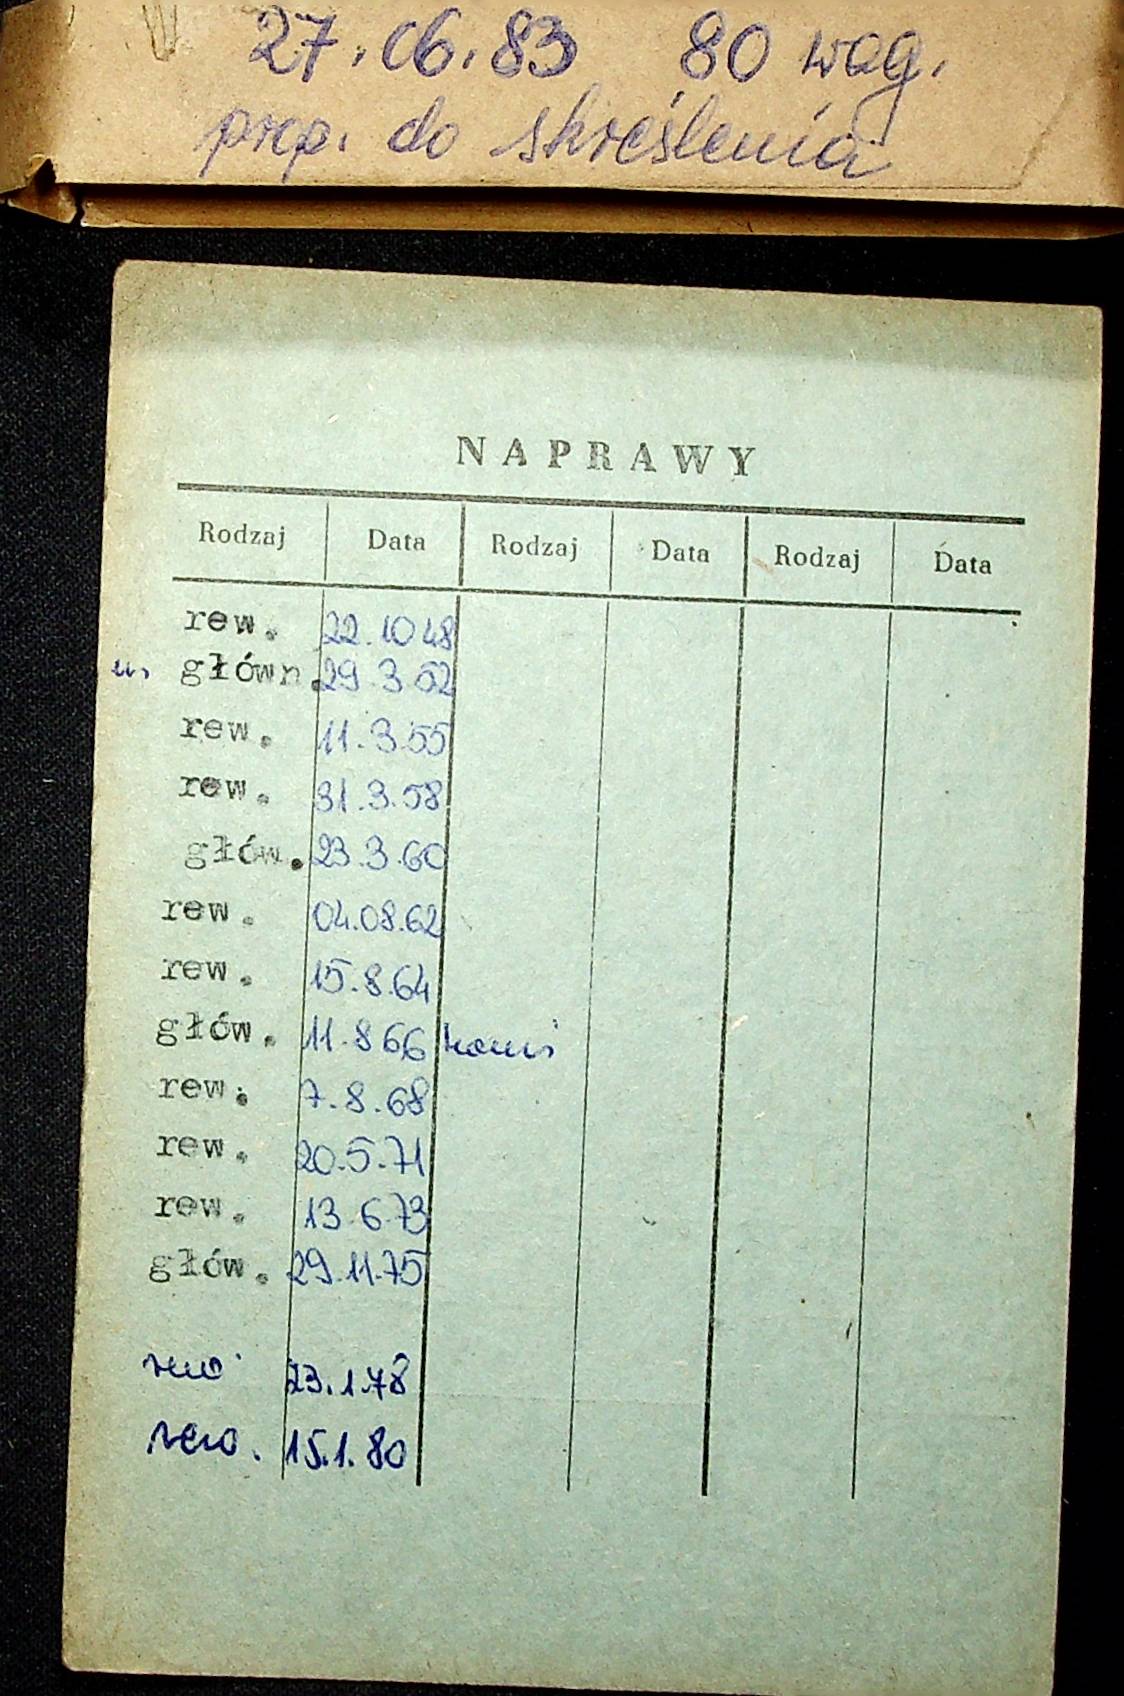 27.06.83 80 wag.
prop. do skreślenia
NAPRAWY
Rodzaj Data Rodzaj Data Rodzaj Data
rew. 22.10 48
główn. 29.3 52
rew. 11.3.55
rew. 31.3.58
głów. 23.3.60
rew. 04.08.62
rew. 15.8.64
głów. 11.8 66
rew. 7.8.68
rew. 20.5.71
rew. 13.6.73
głów. 29.11.75
rew. 23.1.78
rew. 15.1.80